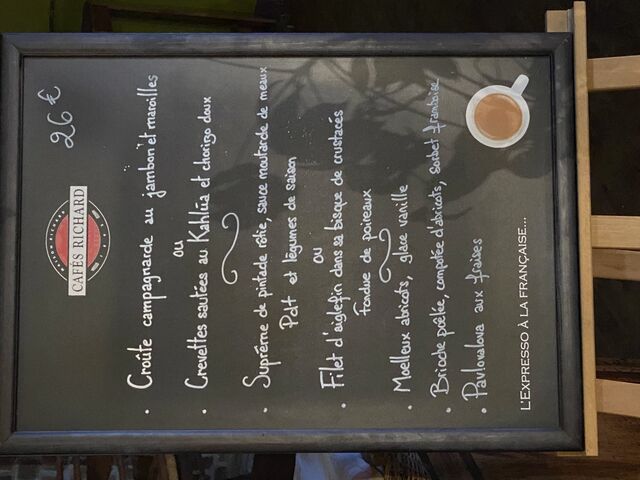 CAFÉS RICHARD
26 €
• Croûte campagnarde au jambon et maroilles
ou
• Crevettes sautées au Kahlúa et chorizo doux
• Suprême de pintade rôtie, sauce moutarde de meaux
Pdt et légumes de saison
ou
• Filet d'aiglefin dans sa bisque de crustacés
Fondue de poireaux
• Moelleux abricots, glace vanille
• Brioche poêlée, compotée d'abricots, sorbet framboise
• Pavlovalova aux fraises
L'EXPRESSO À LA FRANÇAISE...